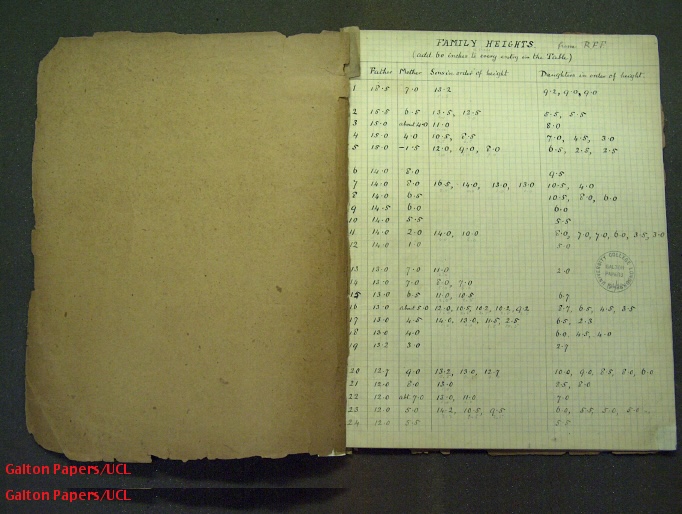 FAMILY HEIGHTS. from R.F.F.
(add 60 inches to every entry in the Table)
Father Mother Sons in order of height Daughters in order of height.
1 18·5 7·0 13·2 9·2, 9·0, 9·0
2 15·5 6·5 13·5, 12·5 5·5, 5·5
3 15·0 about 4·0 11·0 8·0
4 15·0 4·0 10·5, 8·5 7·0, 4·5, 3·0
5 15·0 -1·5 12·0, 9·0, 8·0 6·5, 2·5, 2·5
6 14·0 8·0 9·5
7 14·0 8·0 16·5, 14·0, 13·0, 13·0 10·5, 4·0
8 14·0 6·5 10·5, 8·0, 6·0
9 14·5 6·0 6·0
10 14·0 5·5 5·5
11 14·0 2·0 14·0, 10·0 8·0, 7·0, 7·0, 6·0, 3·5, 3·0
12 14·0 1·0 5·0
13 13·0 7·0 11·0 2·0
14 13·0 7·0 8·0, 7·0
15 13·0 6·5 11·0, 10·5 6·7
16 13·0 about 5·0 12·0, 10·5, 10·2, 10·2, 9·2 8·7, 6·5, 4·5, 3·5
17 13·0 4·5 14·0, 13·0, 11·5, 2·5 6·5, 2·3
18 13·0 4·0 6·0, 4·5, 4·0
19 13·2 3·0 2·7
20 12·7 9·0 13·2, 13·0, 12·7 10·0, 9·0, 8·5, 8·0, 6·0
21 12·0 8·0 13·0 8·0
22 12·0 abt 7·0 12·0, 11·0 7·0
23 12·0 5·0 14·2, 10·5, 9·5 6·0, 5·5, 5·0, 5·0
24 12·0 5·5 5·5
GALTON PAPERS
Galton Papers/UCL
Galton Papers/UCL